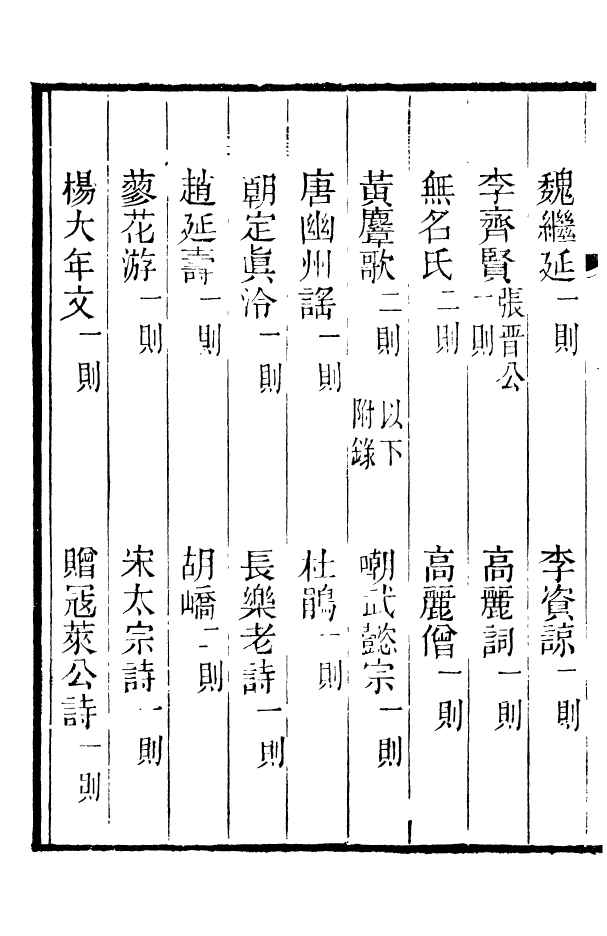 魏繼延一則　李資諒一則
李齊賢張晋公一則　高麗詞一則
無名氏二則　高麗僧一則
黃麞歌二則以下附錄　嘲武懿宗一則
唐幽州謠一則　杜鵑一則
朝定眞泠一則　長樂老詩一則
趙延壽一則　胡嶠二則
蓼花游一則　宋太宗詩一則
楊大年文一則　贈冦萊公詩一則